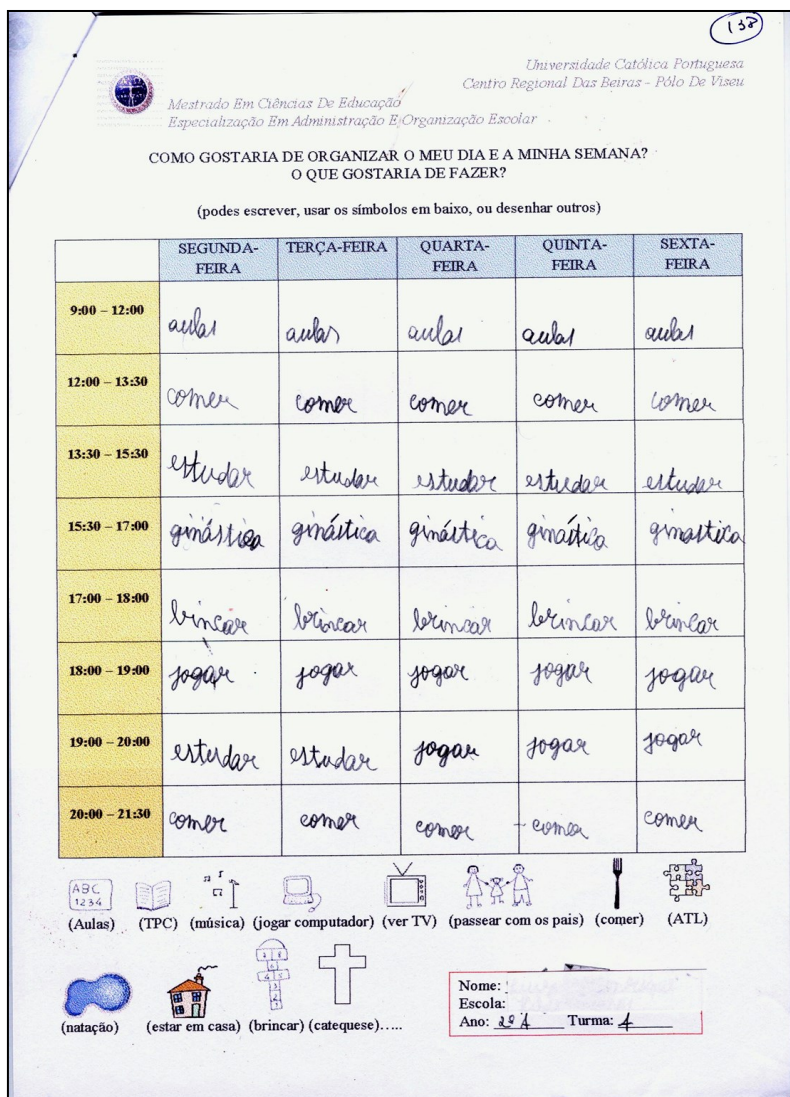 138
Universidade Católica Portuguesa
Centro Regional Das Beiras - Pólo De Viseu
Mestrado Em Ciências De Educação
Especialização Em Administração E Organização Escolar
COMO GOSTARIA DE ORGANIZAR O MEU DIA E A MINHA SEMANA?
O QUE GOSTARIA DE FAZER?
(podes escrever, usar os símbolos em baixo, ou desenhar outros)
SEGUNDA-FEIRA TERÇA-FEIRA QUARTA-FEIRA QUINTA-FEIRA SEXTA-FEIRA
9:00 – 12:00 aulas aulas aulas aulas aulas
12:00 – 13:30 comer comer comer comer comer
13:30 – 15:30 estudar estudar estudar estudar estudar
15:30 – 17:00 ginástica ginástica ginástica ginástica ginastica
17:00 – 18:00 brincar brincar brincar brincar brincar
18:00 – 19:00 jogar jogar jogar jogar jogar
19:00 – 20:00 estudar estudar jogar jogar jogar
20:00 – 21:30 comer comer comer comer comer
ABC
1234
(Aulas) (TPC) (música) (jogar computador) (ver TV) (passear com os pais) (comer) (ATL)
(natação) (estar em casa) (brincar) (catequese).....
Nome:
Escola:
Ano: 2º A Turma: 4